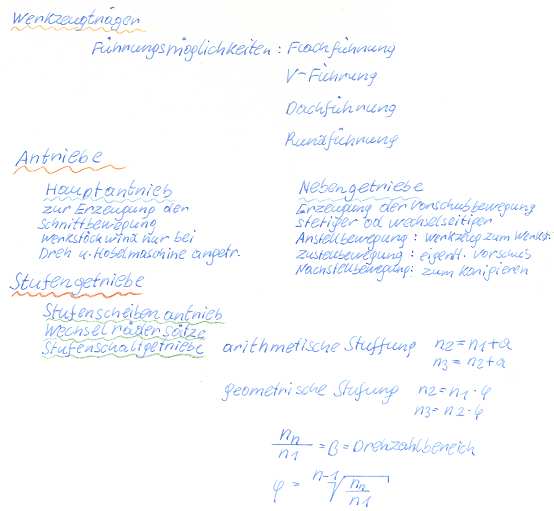 Werkzeugträger
Führungsmöglichkeiten : Flachführung
V-Führung
Dachführung
Rundführung
Antriebe
Hauptantrieb
zur Erzeugung der
Schnittbewegung
Werkstück wird nur bei
Dreh u. Hobelmaschine angetr.
Nebengetriebe
Erzeugung der Vorschubbewegung
stetiger od wechselseitiger
Anstellbewegung : Werkzeug zum
Zustellbewegung : eigentl. Vorschub
Nachstellbewegung: zum korrigieren
Stufengetriebe
Stufenscheibenantrieb
Wechselrädersätze
Stufenschaltgetriebe
arithmetische Stuffung n2 = n1 + a
n3 = n2 + a
geometrische Stufung n2 = n1 · φ
n3 = n2 · φ
nn/n1 = B = Drehzahlbereich
φ = n-1√(nn/n1)